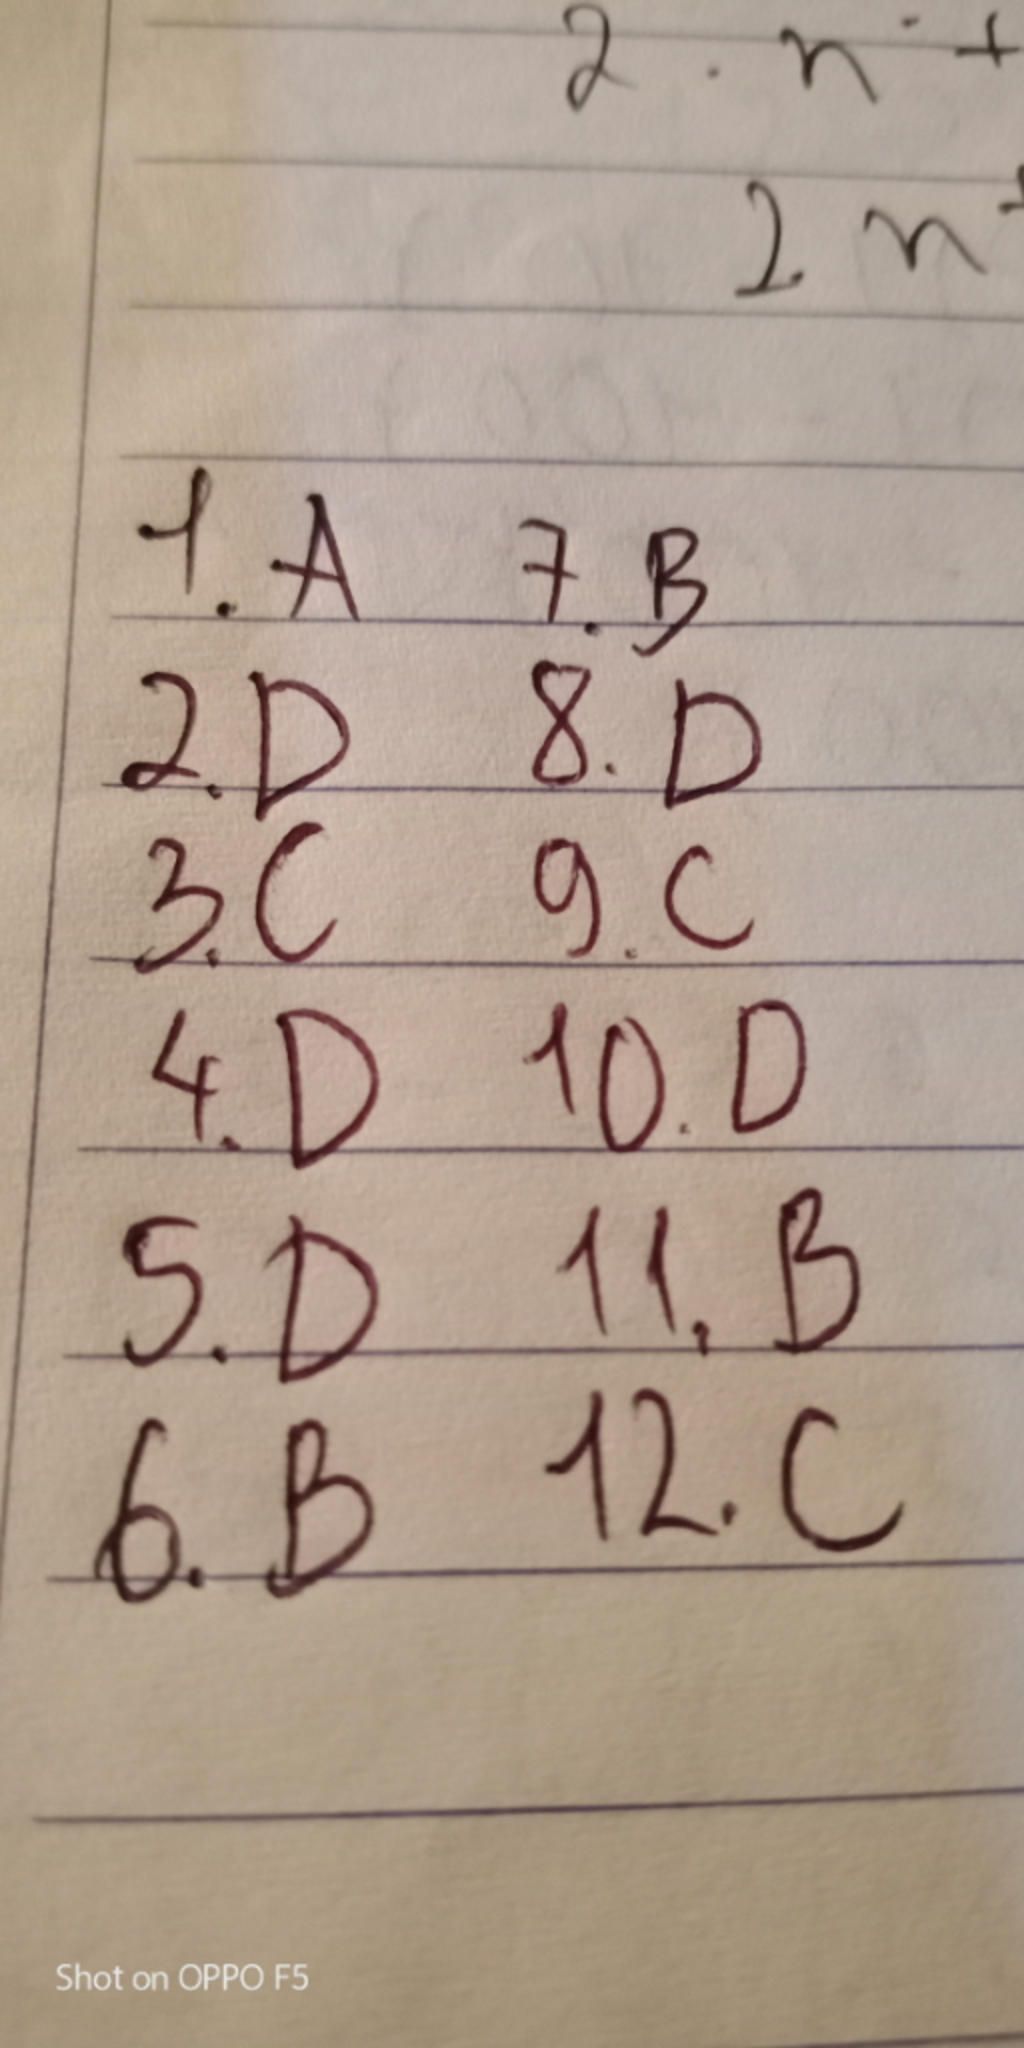 2 . n +
2 n +
1. A 7. B
2. D 8. D
3. C 9. C
4. D 10. D
5. D 11. B
6. B 12. C
Shot on OPPO F5